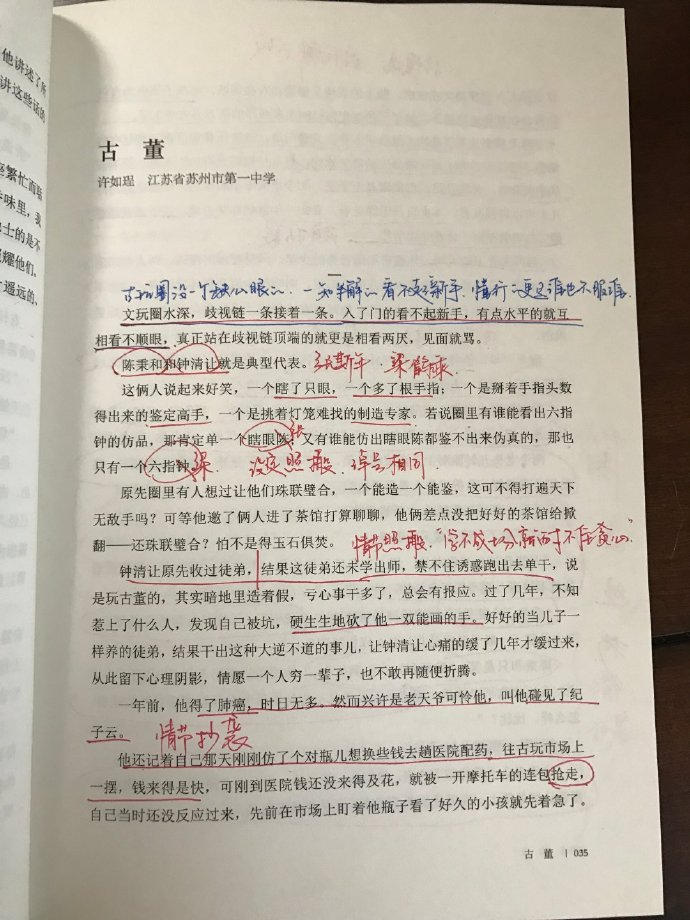 他讲述了所
讲这些话的
座繁忙而喧
味里，我
士的是不
耀他们。
遥远的，
古董
许如珵 江苏省苏州市第一中学
一
古玩圈没一个缺心眼儿，一知半解儿看不起新手，懂行儿更是谁也不服谁。
文玩圈水深，歧视链一条接着一条。入了门的看不起新手，有点水平的就互
相看不顺眼，真正站在歧视链顶端的就更是相看两厌，见面就骂。
陈秉和和钟清让就是典型代表。
这俩人说起来好笑，一个瞎了只眼，一个多了根手指；一个是掰着手指头数
得出来的鉴定高手，一个是挑着灯笼难找的制造专家。若说圈里有谁能看出六指
钟的仿品，那肯定单一个瞎眼陈，又有谁能仿出瞎眼陈都鉴不出来伪真的，那也
张
只有一个六指钟。
梁 设定照搬 诨号相同
原先圈里有人想过让他们珠联璧合，一个能造一个能鉴，这可不得打遍天下
无敌手吗？可等他邀了俩人进了茶馆打算聊聊，他俩差点没把好好的茶馆给掀
翻——还珠联璧合？怕不是得玉石俱焚。
情节照搬
钟清让原先收过徒弟，结果这徒弟还未学出师，禁不住诱惑跑出去单干，说
是玩古董的，其实暗地里造着假，亏心事干多了，总会有报应。过了几年，不知
惹上了什么人，发现自己被坑，硬生生地砍了他一双能画的手。好好的当儿子一
样养的徒弟，结果干出这种大逆不道的事儿，让钟清让心痛的缓了几年才缓过来，
从此留下心理阴影，情愿一个人穷一辈子，也不敢再随便折腾。
一年前，他得了肺癌，时日无多。然而兴许是老天爷可怜他，叫他碰见了纪
子云。
情节抄袭
他还记着自己那天刚刚仿了个对瓶儿想换些钱去趟医院配药，往古玩市场上
一摆，钱来得是快，可刚到医院钱还没来得及花，就被一开摩托车的连包抢走，
自己当时还没反应过来，先前在市场上盯着他瓶子看了好久的小孩就先着急了。
古 董 | 035